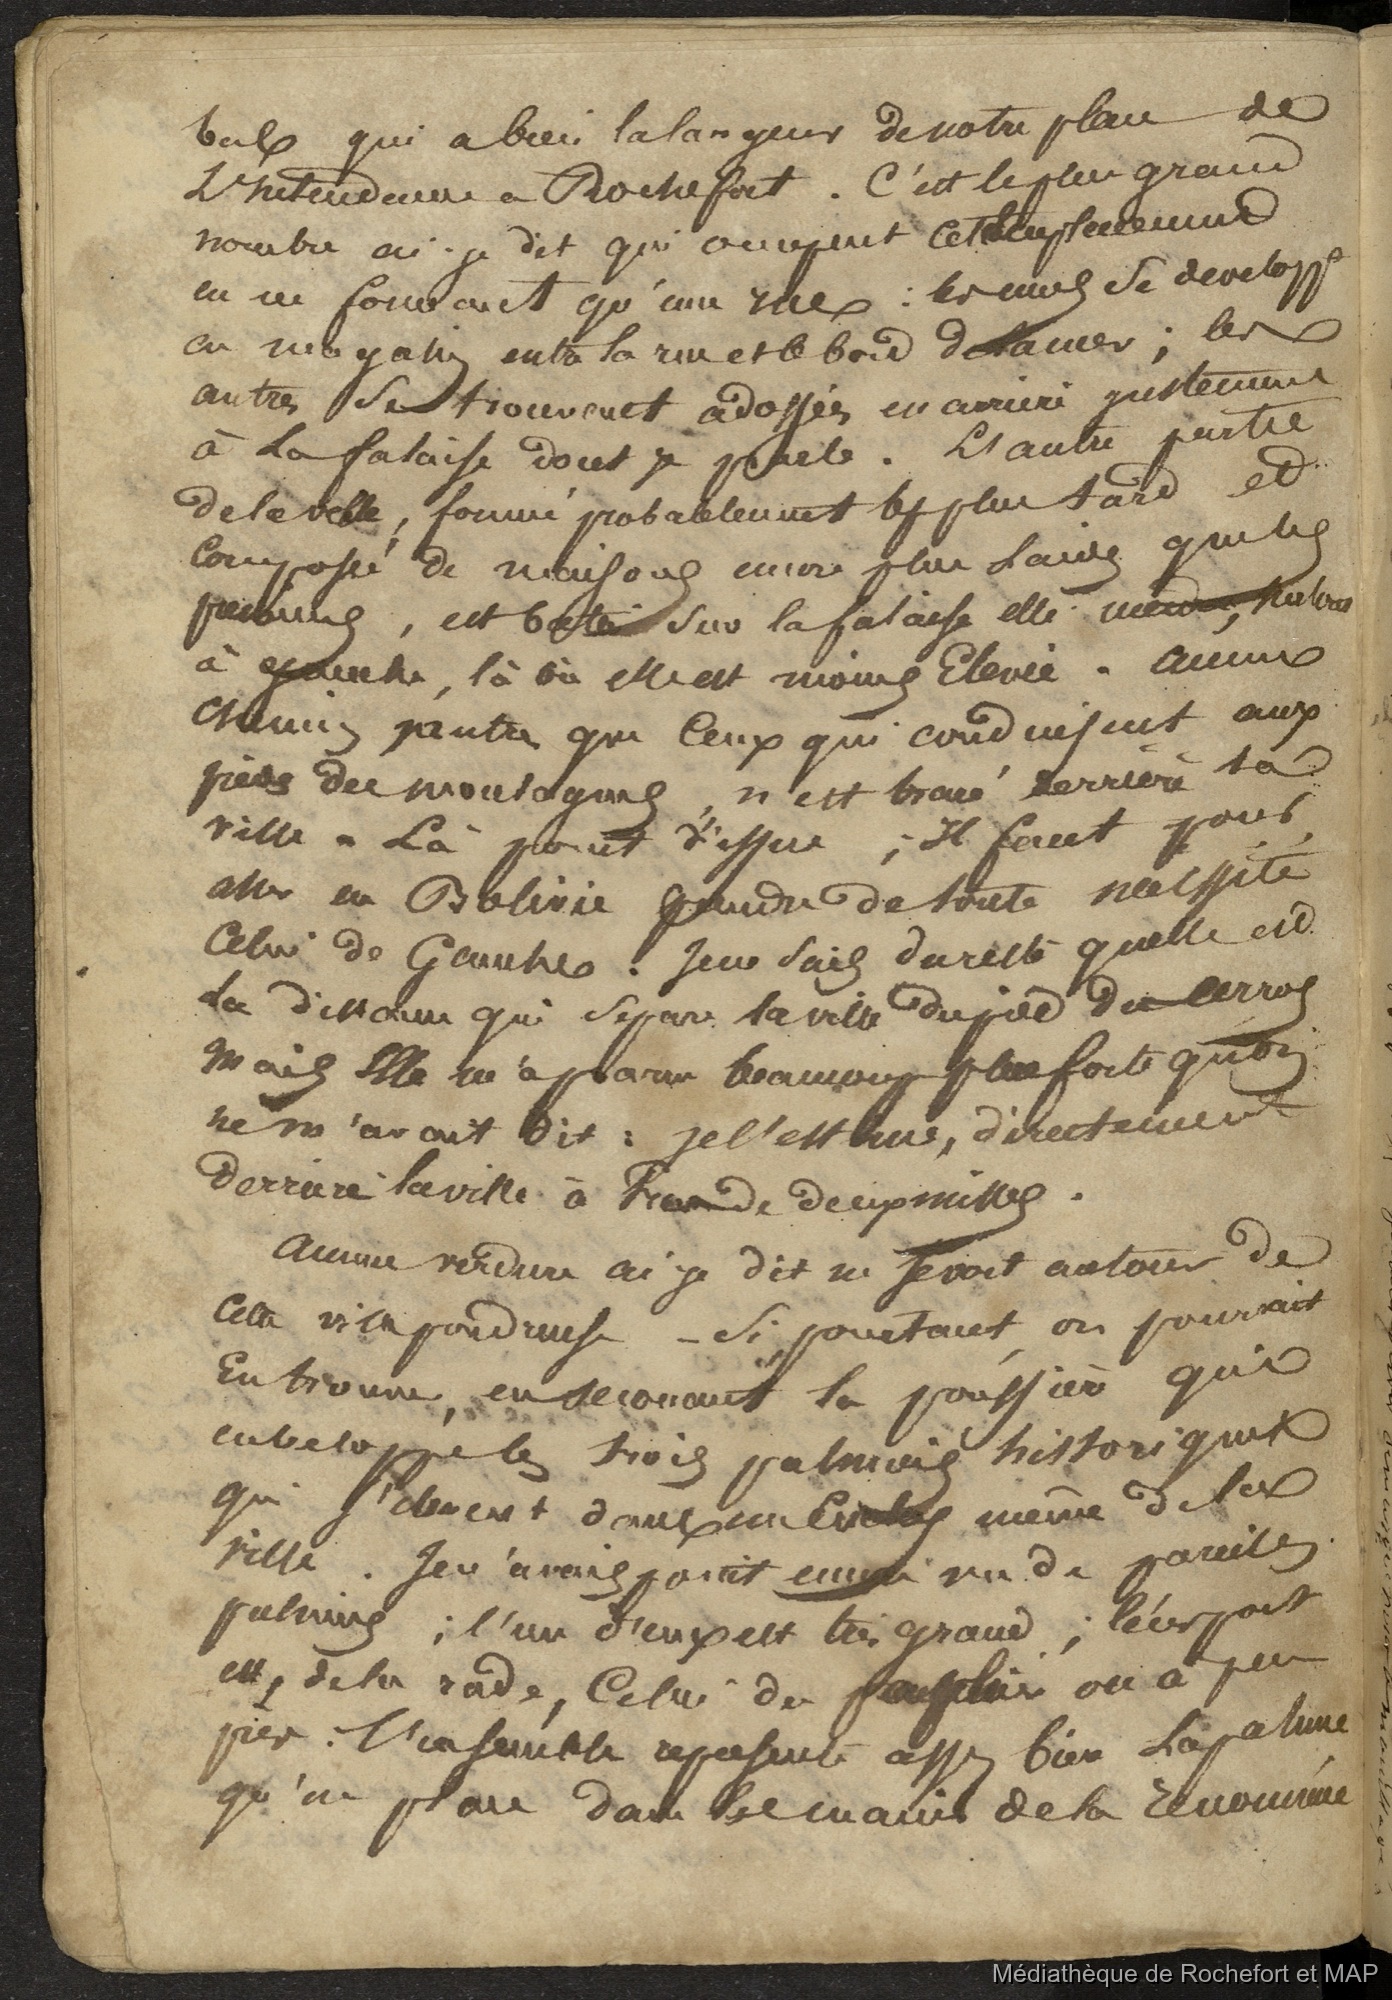 qui a bien la largeur de notre place de
L'Intendance a Rochefort . C'est le plus grand
nombre ai-je dit qui occupent cet Emplacement
en ne formant qu'une rue : les unes se developp
en magasins entre la rue et le bord de la mer ; les
autres se trouvent adossées en arriere justement
à La falaise dont je parle . L'autre partie
de la ville, formé probablement plus tard et
Composé de maisons encore plus Laides que les
premieres , est batie sur la falaise elle même,
à gauche, là où elle est moins Elevée . aucun
Chemin autre que Ceux qui conduisent aux
pieds des montagnes , n'est tracé derriere la
ville . Là point d'issue ; Il faut pour
aller en Bolivie prendre de toute necessité
Celui de Gauche . Je ne sais du reste quelle est
La distance qui separe la ville du pied du Cerros
Mais Elle m'a parue beaucoup plus forte qu'on
ne m'avait dit : je l'estime, directement
derriere la ville à de deux milles .
Aucune verdure ai-je dit ne se voit autour de
Cette ville poudreuse – Si, pourtant, on pourrait
En trouver, en secouant la poussiere qui
enveloppe les trois palmiers historiques
qui s'elevent dans un Enclos même de la
ville . Je n'avais point encore vu de pareils
palmiers ; l'un d'eux est très grand ; leur port
est, de la rade, Celui du peuplier ou a peu
près . L'ensemble represente assez bien La palme
qu'on place dans les mains de la renommée
Médiathèque de Rochefort et MAP